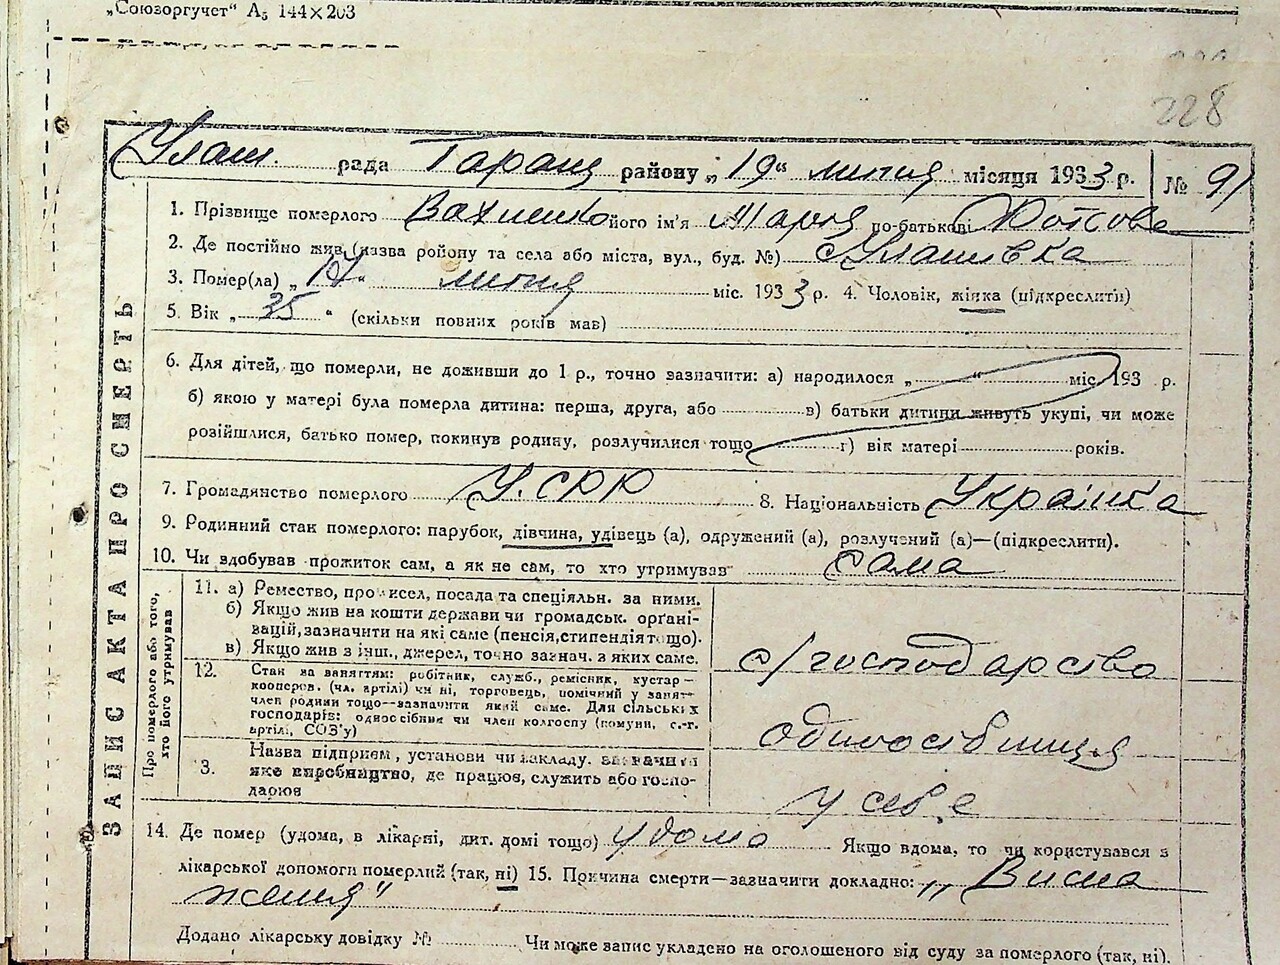 „Союзоргучет“ А₅ 144×203
228
Улаш. рада Таращ району „19“ липня місяця 1933 р. № 91
1. Прізвище померлого Вахненко його ім'я Марія по-батькові
2. Де постійно жив (назва району та села або міста, вул., буд. №) с Улашівка
3. Помер(ла) „ “ липня міс. 1933 р. 4. Чоловік, жінка (підкреслити)
5. Вік „35“ (скільки повних років мав)
6. Для дітей, що померли, не доживши до 1 р., точно зазначити: а) народилося „ “ міс. 193 р.
б) якою у матері була померла дитина: перша, друга, або в) батьки дитини живуть укупі, чи може
розійшлися, батько помер, покинув родину, розлучилися тощо г) вік матері років.
7. Громадянство померлого У.СРР 8. Національність Українка
9. Родинний стак померлого: парубок, дівчина, удівець (а), одружений (а), розлучений (а)—(підкреслити).
10. Чи здобував прожиток сам, а як не сам, то хто утримував сама
ЗАПИС АКТА ПРО СМЕРТЬ
Про померлого або того,
хто його утримував
11. а) Ремество, промисел, посада та спеціяльн. за ними.
б) Якщо жив на кошти держави чи громадськ. орґані-
вацій, зазначити на які саме (пенсія, стипендія тощо).
в) Якщо жив з інш., джерел, точно зазнач. з яких саме.
с/господарство
12. Стан за заняттям: робітник, служб., ремісник, кустар—
кооперов. (чл. артілі) чи ні, торговець, помічний у занят-
член родини тощо—зазначити який саме. Для сільських
господарів: одноосібник чи член колгоспу (комуни, с.-г.
артілі, СОЗ'у)
одноосібниця
3. Назва підприєм, установи чи закладу. зазначити
яке виробництво, де працює, служить або госпо-
дарює
у себе
14. Де помер (удома, в лікарні, дит. домі тощо) удома Якщо вдома, то чи користувався з
лікарської допомоги померлий (так, ні) 15. Причина смерти—зазначити докладно: „Висна
ження“
Додано лікарську довідку № Чи може запис укладено на оголошеного від суду за померлого (так, ні).